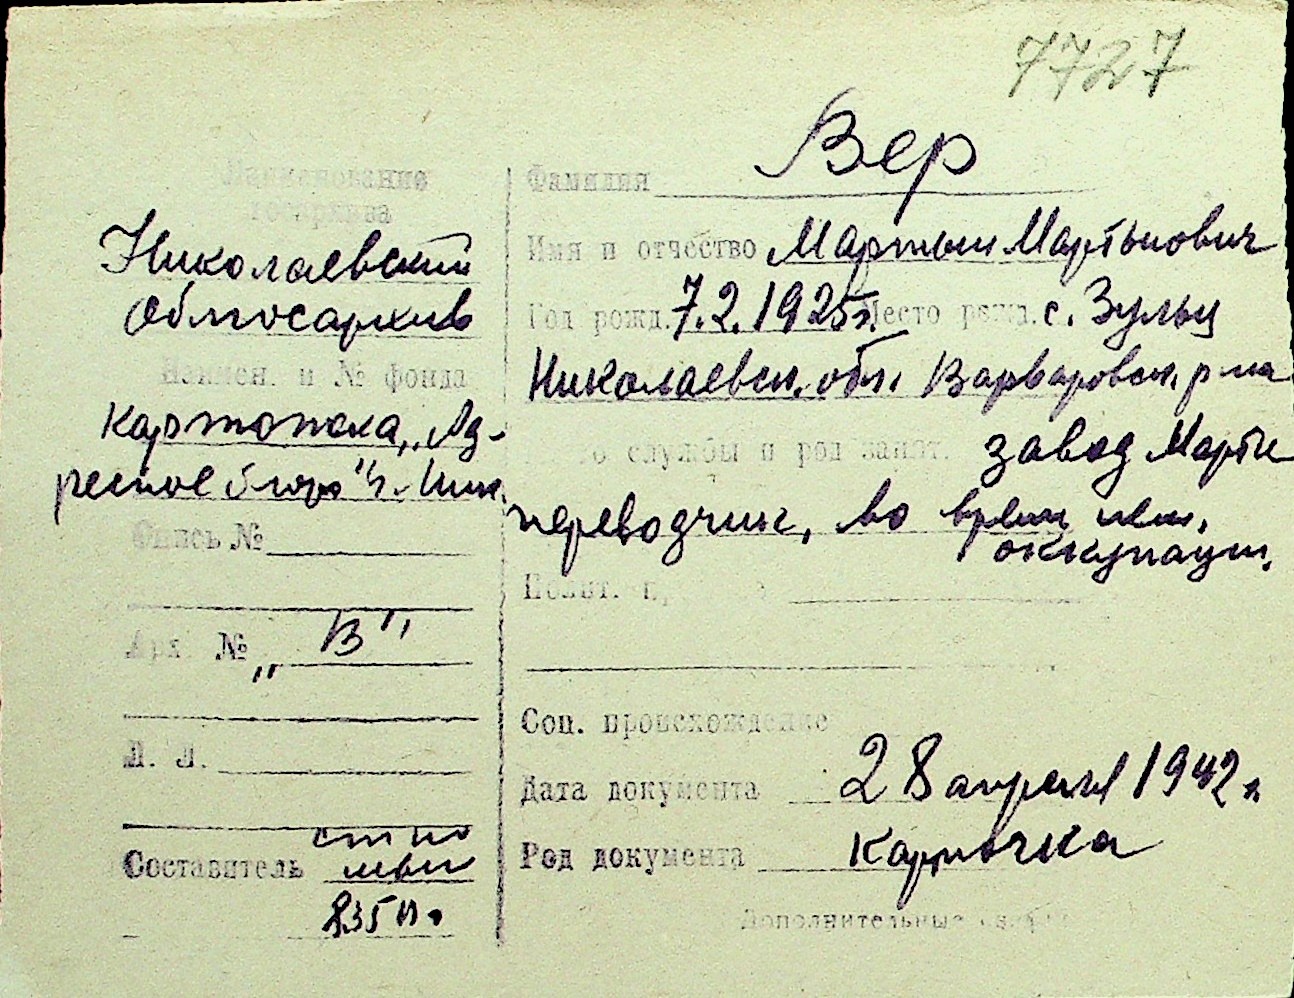 7727
Наименование
госархива
Николаевский
Облгосархив
Наимен. и № фонда
Картотека „Ад-
ресное бюро" г. Ник.
Опись №
Арх. № „В"
Л. Л.
Составитель
835 п.
Фамилия Вер
Имя и отчество Мартын Мартынович
Год рожд. 7.2.1925 г. Место рожд. с. Зульц
Николаевск. обл. Варваровск. р-на
службы и род занят. завод Марти
переводчик, во время нем.
оккупации.
Полит.
Соц. происхождение
Дата документа 28 апреля 1942 г.
Род документа карточка
Дополнительные